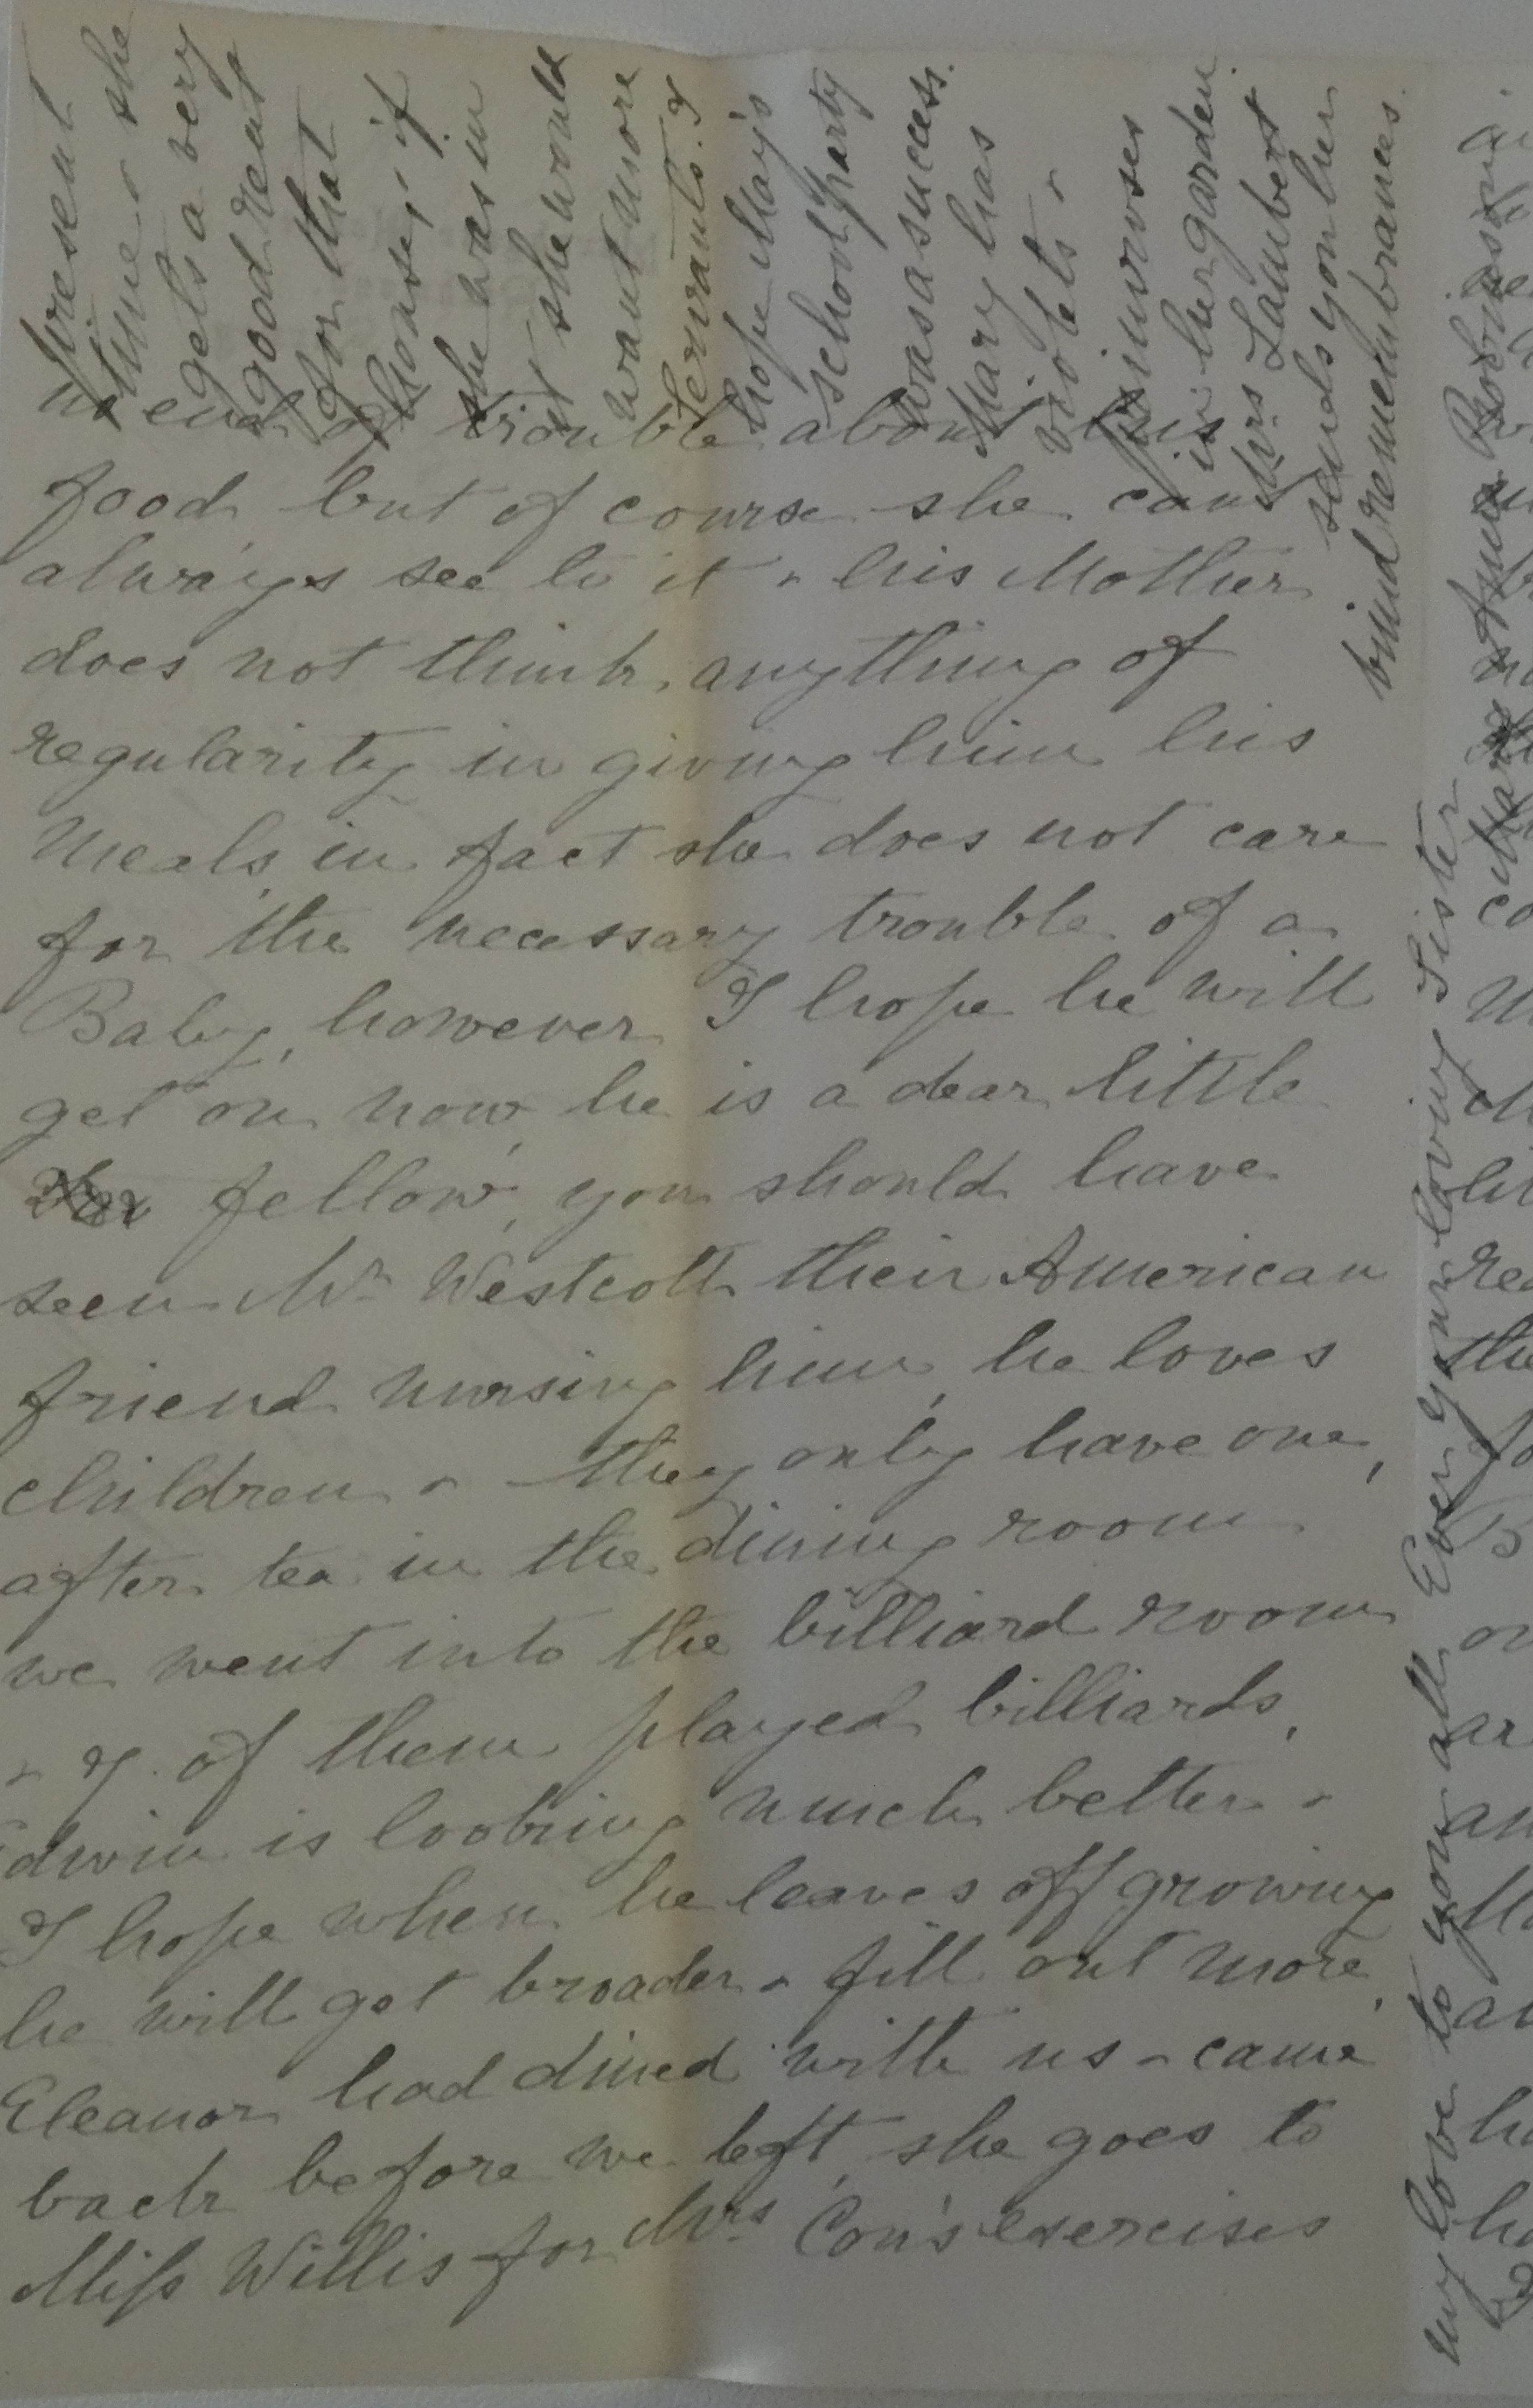 no end of trouble about his
food, but of course she cant
always see to it & his Mother
does not think anything of
regularity in giving him his
meals, in fact she does not care
for the necessary trouble of a
Baby, however I hope he will
get on now, he is a dear little
fellow, you should have
seen Mr Westcott their American
friend nursing him, he loves
children & they only have one,
after tea in the dining room
we went into the billiard room
& 7 of them played billiards,
Edwin is looking much better &
I hope when he leaves off growing
he will get broader & fill out more,
Eleanor had dined with us & came
back before we left, she goes to
Miss Willis for Mrs Con's exercises
present
time & she
gets a very
good rent
for that
house, if
she was in
it she would
want more
servants. I
hope May's
school party
was a success.
Mary has
violets &
primroses
in her garden.
Mrs Lambert
sends you her
kind remembrances.
my love to you all Ever your loving Sister